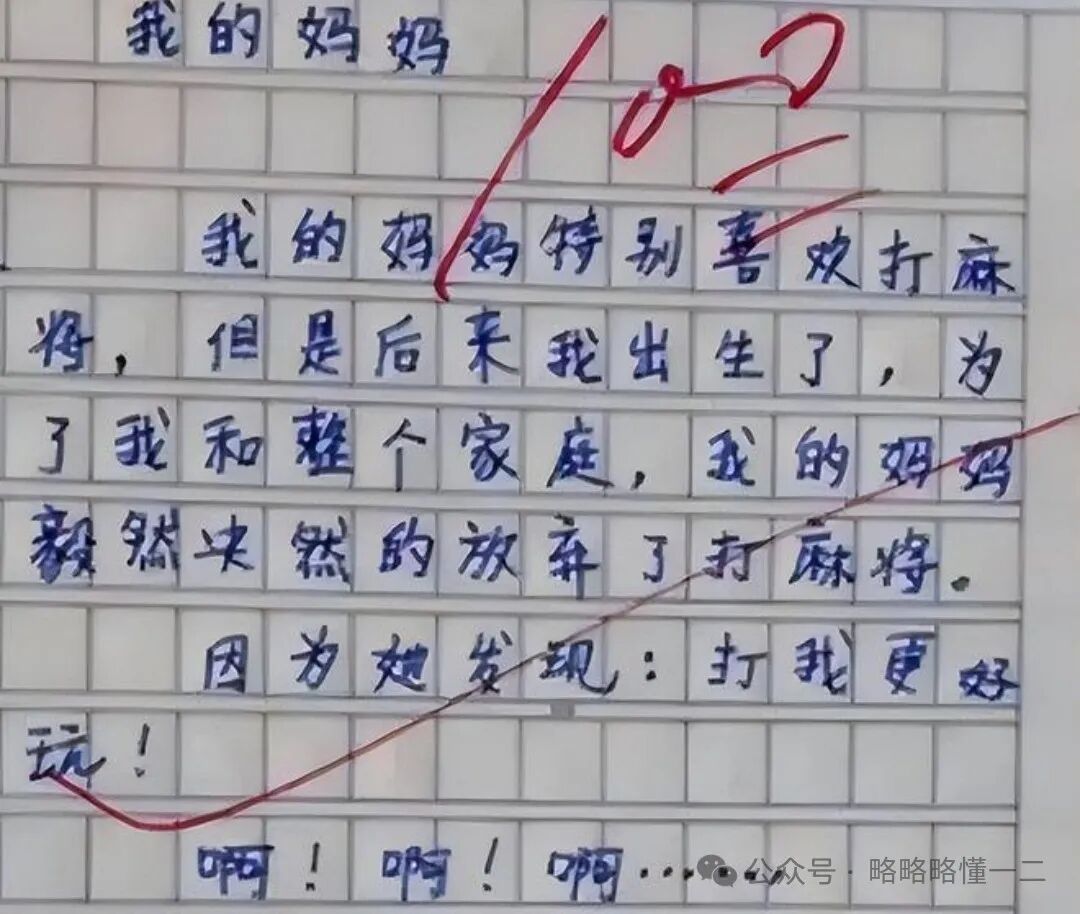 我的妈妈
100
我的妈妈特别喜欢打麻
将，但是后来我出生了，为
了我和整个家庭，我的妈妈
毅然决然的放弃了打麻将。
因为她发现：打我更好
玩！
啊！啊！啊……
公众号·略略略懂一二